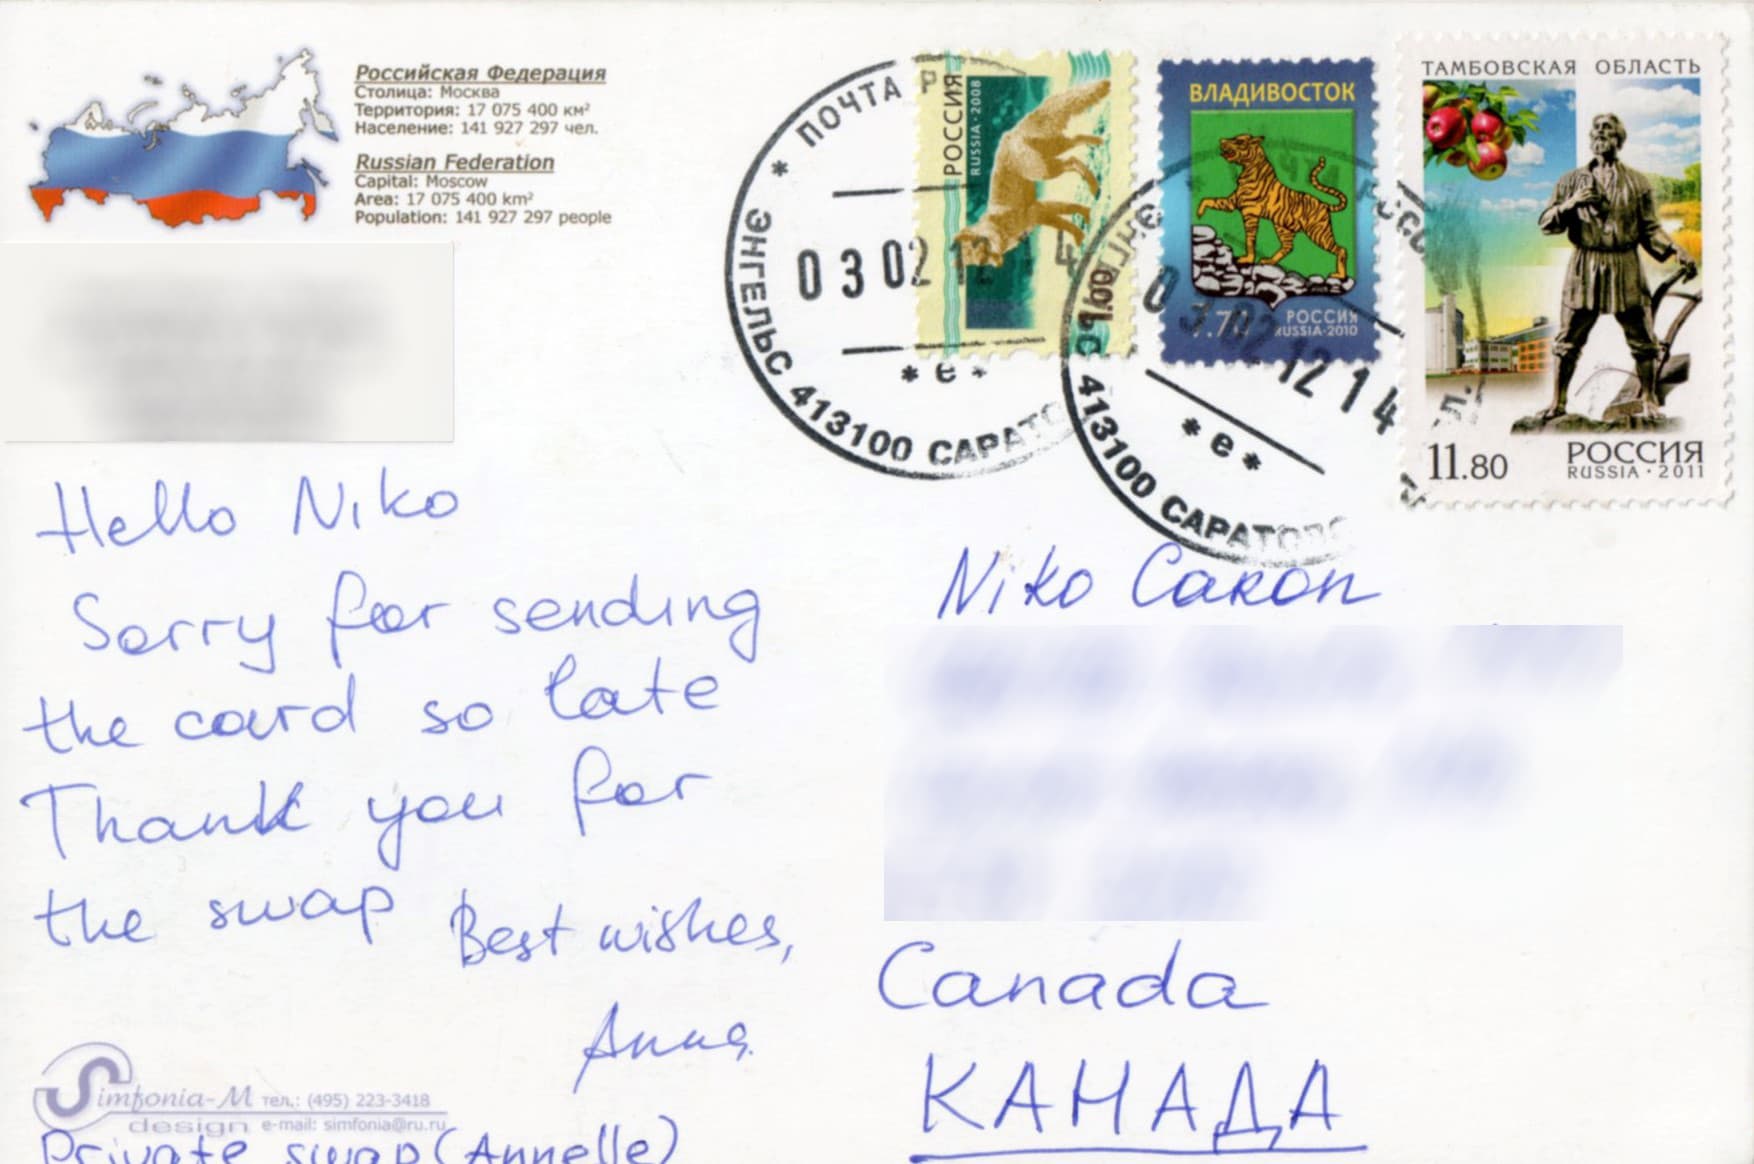 Российская Федерация
Столица: Москва
Территория: 17 075 400 км²
Население: 141 927 297 чел.
Russian Federation
Capital: Moscow
Area: 17 075 400 km²
Population: 141 927 297 people
* ПОЧТА Р
ЭНГЕЛЬС 413100 САРАТО
03 02 12 4
* е *
РОССИЯ
RUSSIA · 2008
ВЛАДИВОСТОК
РОССИЯ
RUSSIA · 2010
03 02 12 14
* е *
413100 САРАТОВС
ТАМБОВСКАЯ ОБЛАСТЬ
11.80
РОССИЯ
RUSSIA · 2011
Hello Niko
Sorry for sending
the card so late
Thank you for
the swap
Best wishes,
Anna
Simfonia-M тел.: (495) 223-3418
design e-mail: simfonia@ru.ru
Private swap (Annelle)
Niko Caron
Canada
КАНАДА